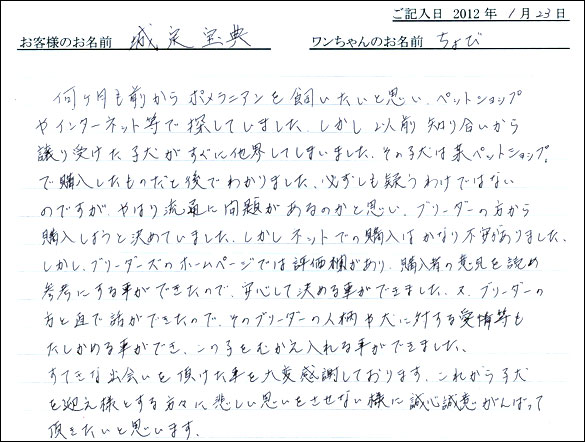 ご記入日 2012 年 1 月 23 日
お客様のお名前 成定宝典 ワンちゃんのお名前 ちょび
何ヶ月も前からポメラニアンを飼いたいと思い、ペットショップ
やインターネット等で探していました。しかし以前知り合いから
譲り受けた子犬がすぐに他界してしまいました。その子犬は某ペットショップ
で購入したものだと後でわかりました。必ずしも疑うわけではない
のですが、やはり流通に問題があるのかと思い、ブリーダーの方から
購入しようと決めていました。しかしネットでの購入はかなり不安がありました。
しかし、ブリーダーズのホームページでは評価欄があり、購入者の意見を読め
参考にする事ができたので、安心して決める事ができました。又、ブリーダーの
方と直で話ができたので、そのブリーダーの人柄や犬に対する愛情等も
たしかめる事ができ、この子をむかえ入れる事ができました。
すてきな出会いを頂けた事を大変感謝しております。これから子犬
を迎え様とする方々に悲しい思いをさせない様に誠心誠意がんばって
頂きたいと思います。